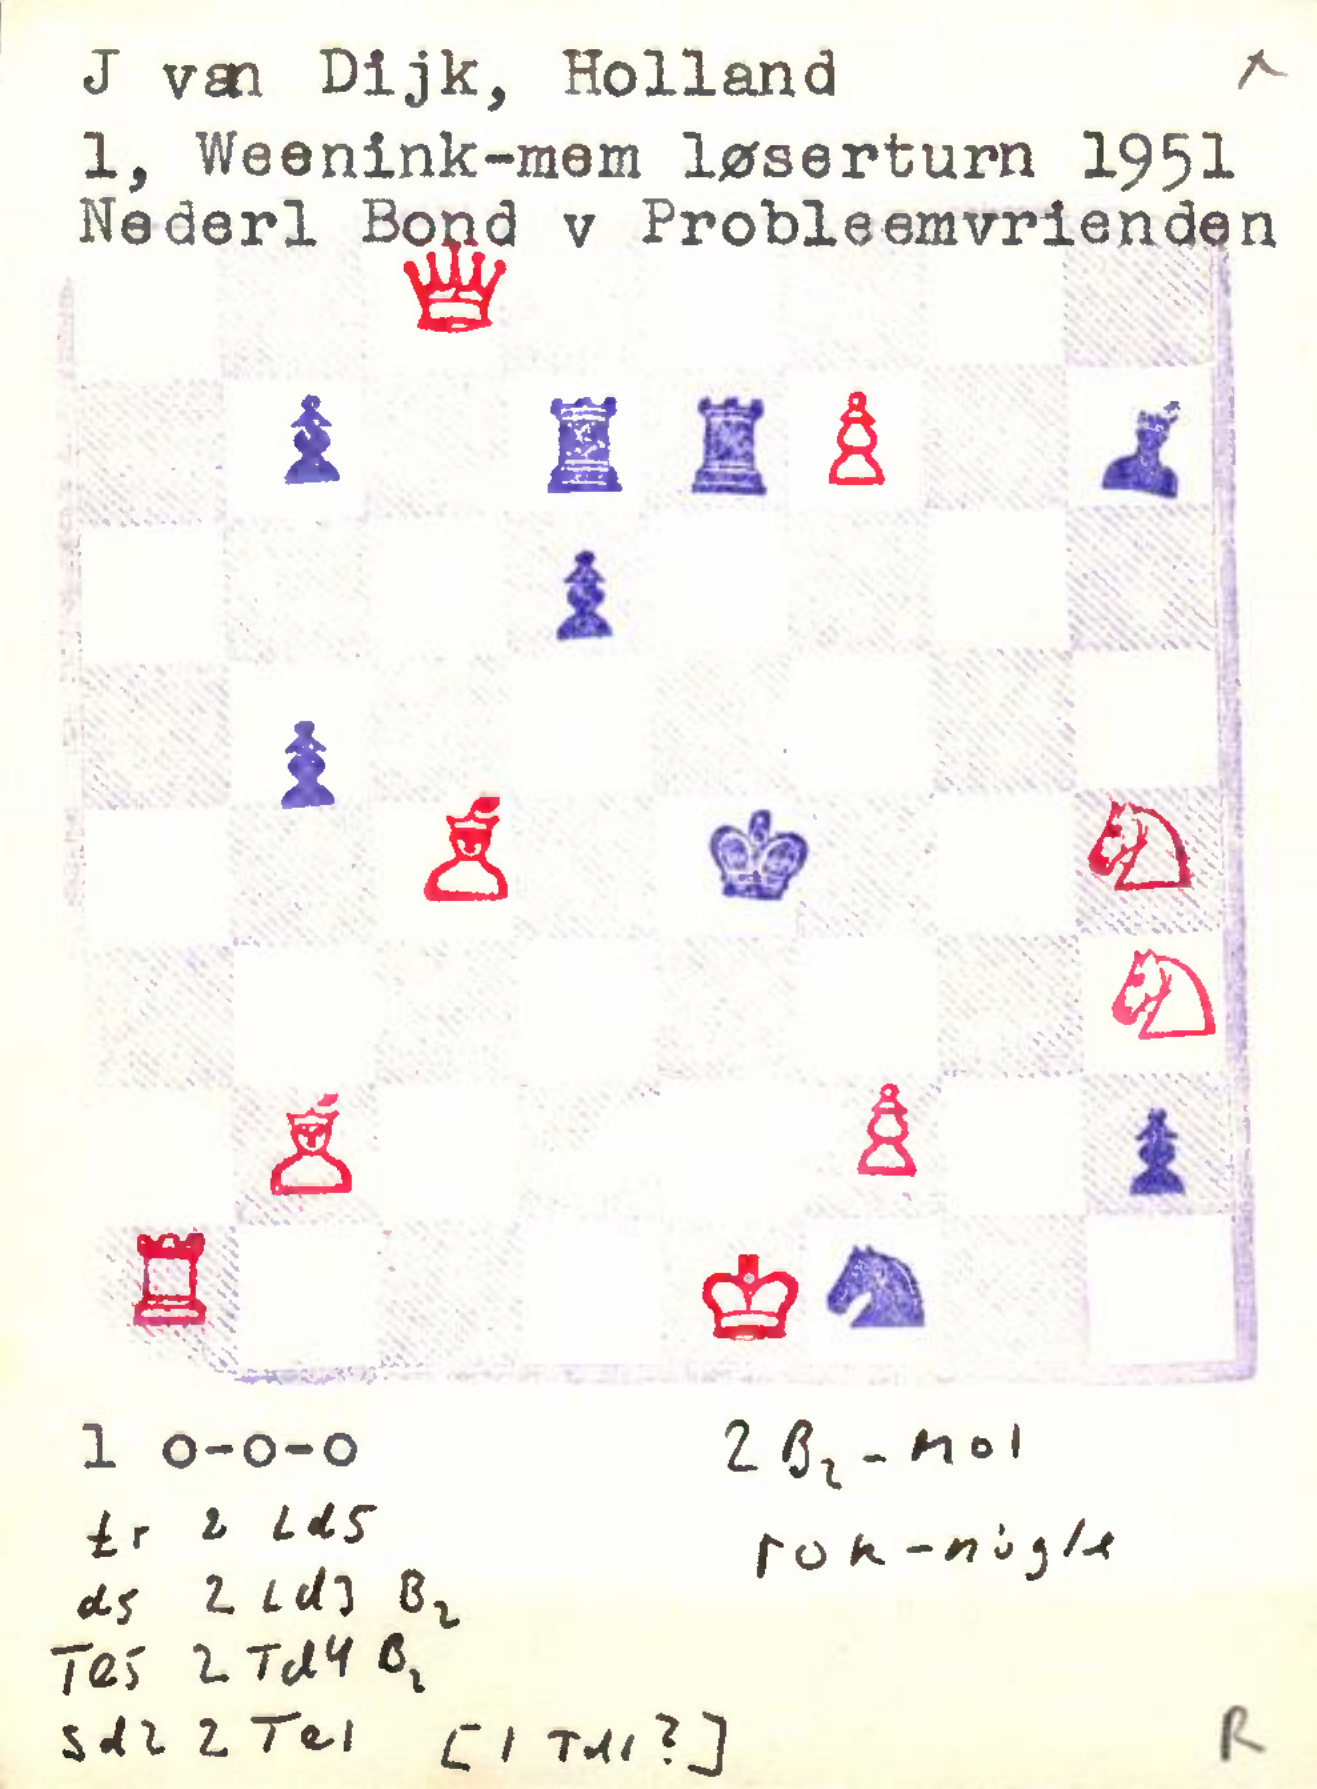 J van Dijk, Holland
1, Weenink-mem løserturn 1951
Nederl Bond v Probleemvrienden
1 o-o-o
tr 2 Ld5
d5 2 Ld3 B2
Te5 2 Td4 B2
Sd2 2 Te1 [1 Td1?]
2 B2-mol
rok-nøgle
R